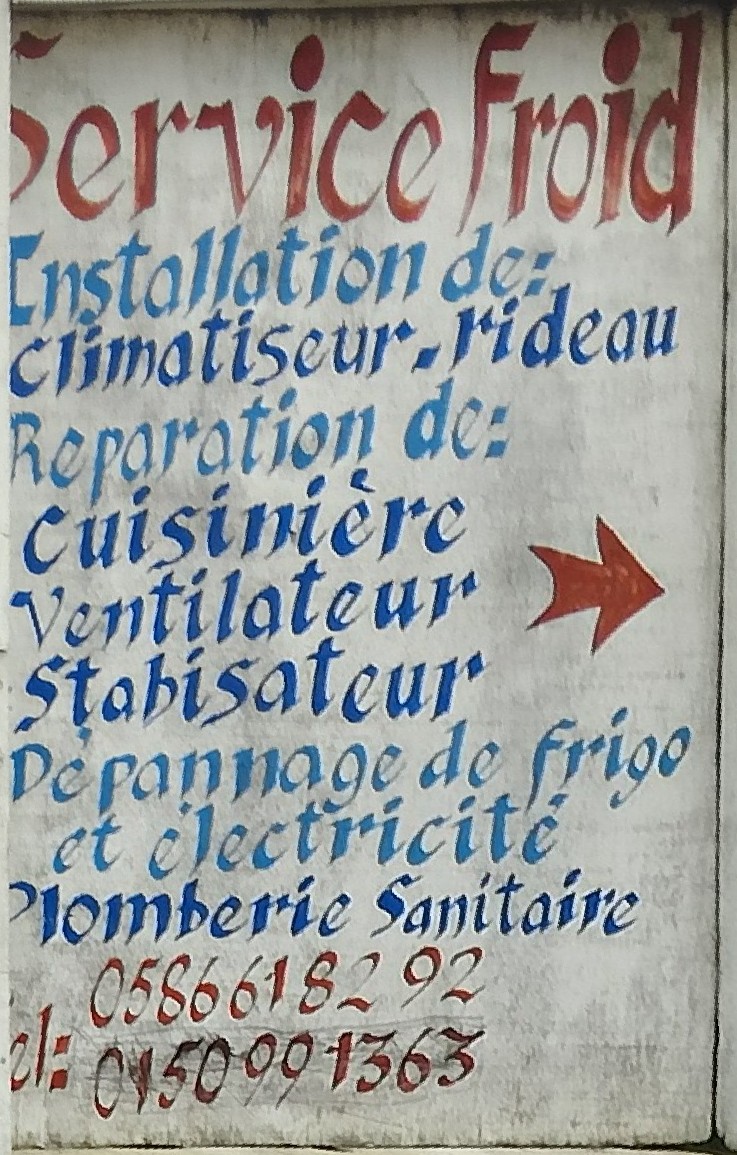 Service froid
Installation de:
climatiseur-rideau
Reparation de:
cuisinière
Ventilateur
Stabisateur
Dépannage de frigo
et électricité
Plomberie Sanitaire
0586618292
Tel: 0150991363